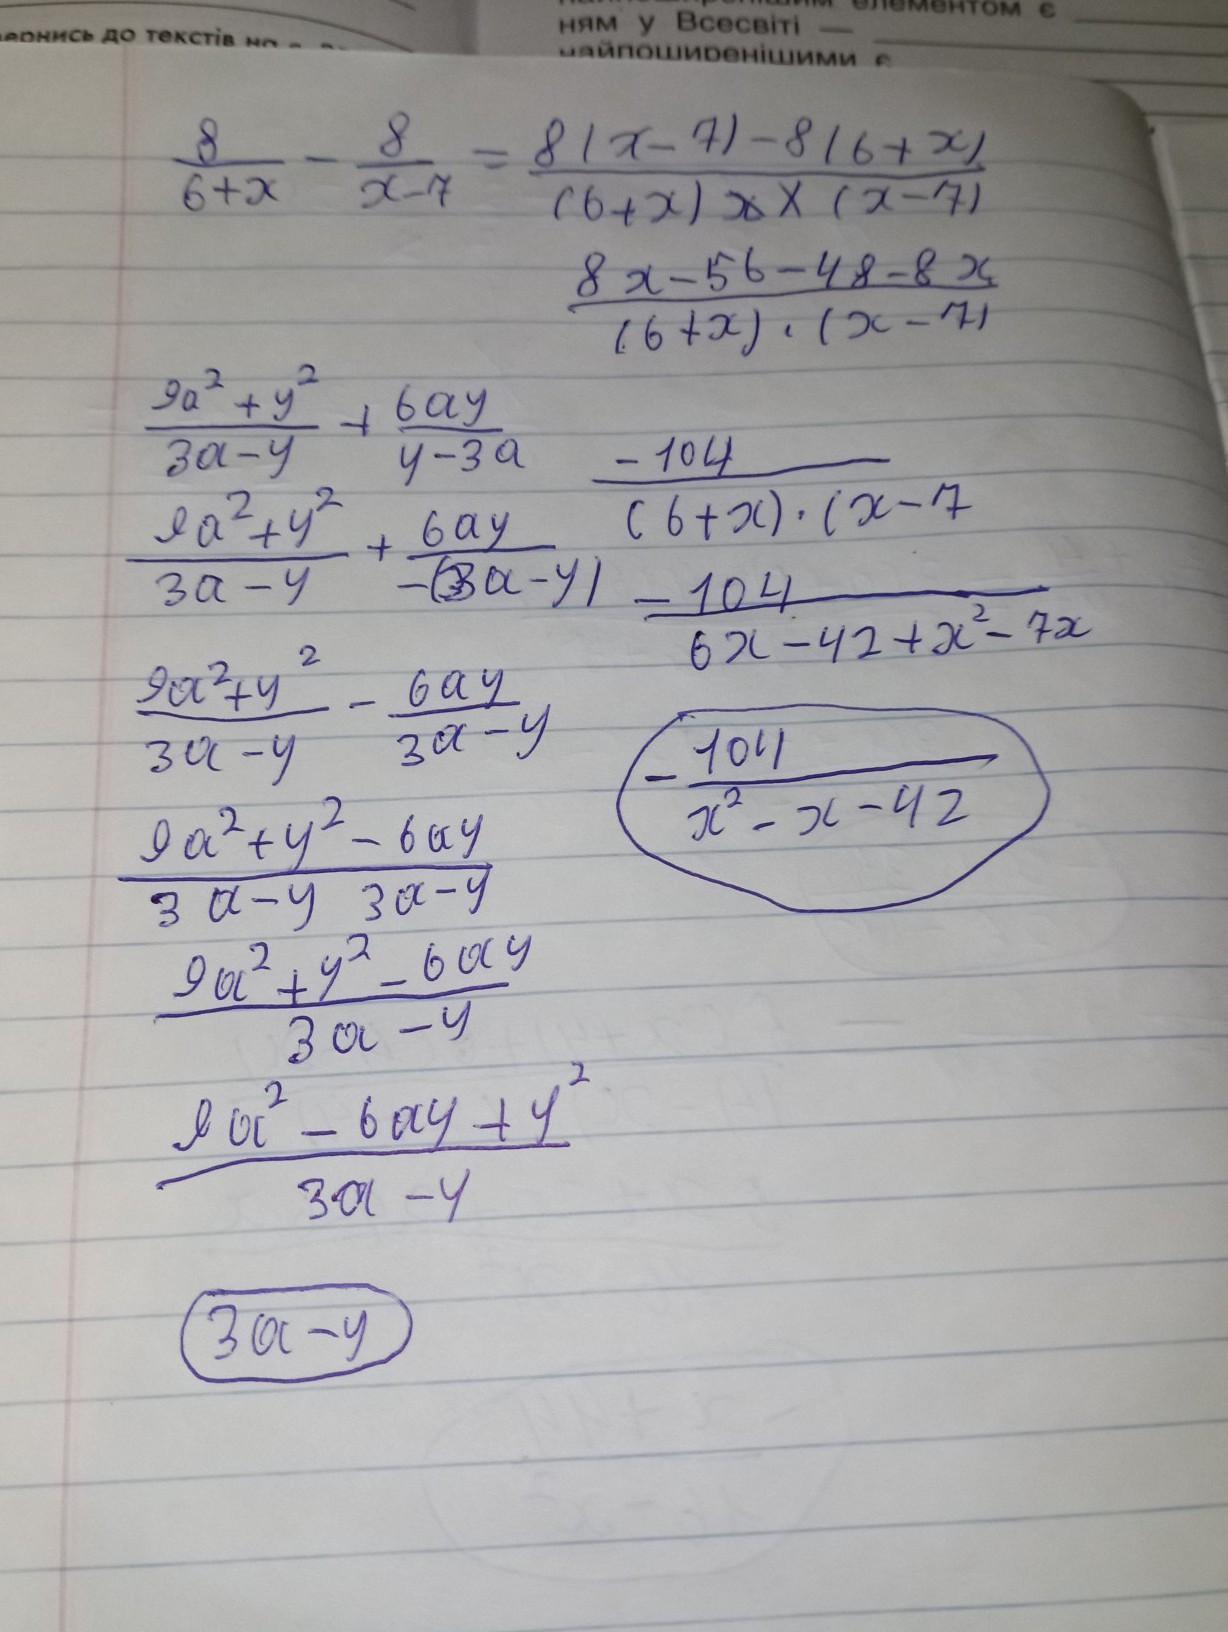 найпоширенішим елементом є
ням у Всесвіті —
найпоширенішими є
до текстів на
8/(6+x) - 8/(x-7) = (8(x-7)-8(6+x))/((6+x) x (x-7))
(8x-56-48-8x)/((6+x)·(x-7))
(9a²+y²)/(3a-y) + 6ay/(y-3a)
-104/((6+x)·(x-7
(9a²+y²)/(3a-y) + 6ay/(-(3a-y))
-104/(6x-42+x²-7x)
(9a²+y²)/(3a-y) - 6ay/(3a-y)
-104/(x²-x-42)
(9a²+y²-6ay)/(3a-y 3a-y)
(9a²+y²-6ay)/(3a-y)
(9a²-6ay+y²)/(3a-y)
3a-y